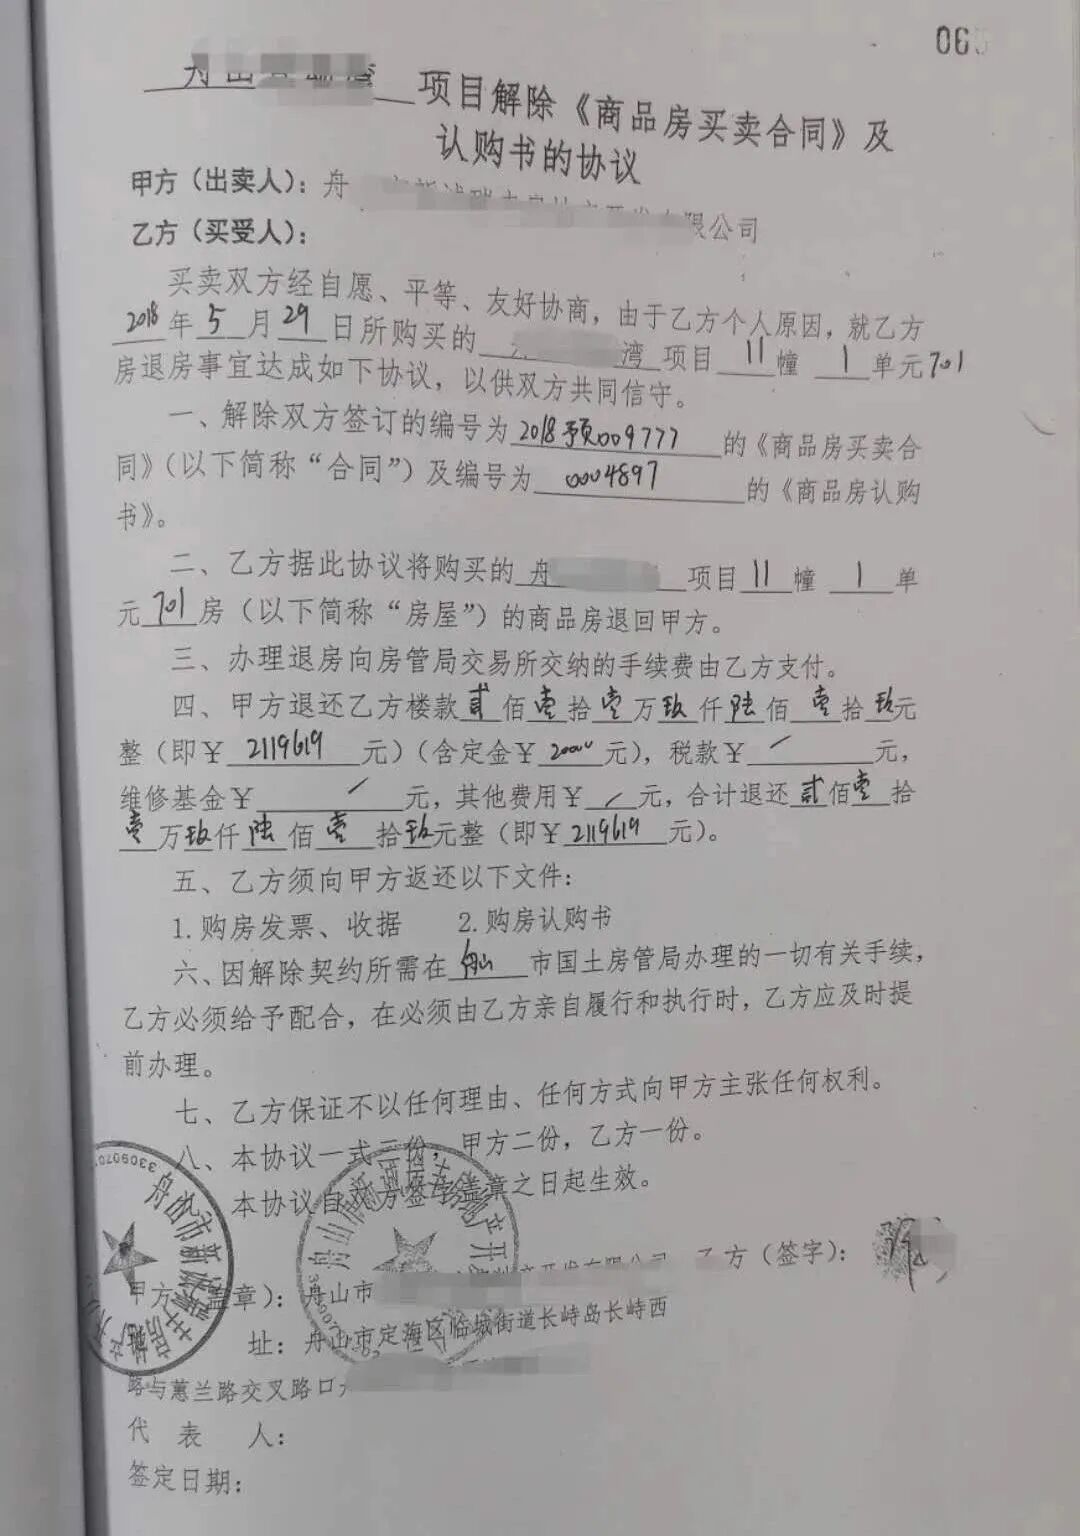 06
项目解除《商品房买卖合同》及
认购书的协议
甲方（出卖人）：舟 限公司
乙方（买受人）：
买卖双方经自愿、平等、友好协商，由于乙方个人原因，就乙方
2018年5月29日所购买的 湾 项目 11 幢 1 单元701
房退房事宜达成如下协议，以供双方共同信守。
一、解除双方签订的编号为 2018预009777 的《商品房买卖合
同》（以下简称“合同”）及编号为 0004897 的《商品房认购
书》。
二、乙方据此协议将购买的 舟 项目 11 幢 1 单
元701房（以下简称“房屋”）的商品房退回甲方。
三、办理退房向房管局交易所交纳的手续费由乙方支付。
四、甲方退还乙方楼款贰佰壹拾壹万玖仟陆佰壹拾玖元
整（即￥2119619元）（含定金￥20000元），税款￥ / 元，
维修基金￥ / 元，其他费用￥ / 元，合计退还贰佰壹拾
壹万玖仟陆佰壹拾玖元整（即￥2119619元）。
五、乙方须向甲方返还以下文件：
1.购房发票、收据 2.购房认购书
六、因解除契约所需在 舟山 市国土房管局办理的一切有关手续，
乙方必须给予配合，在必须由乙方亲自履行和执行时，乙方应及时提
前办理。
七、乙方保证不以任何理由、任何方式向甲方主张任何权利。
八、本协议一式三份，甲方二份，乙方一份。
本协议自双方签字盖章之日起生效。
甲方（盖章）：舟山市 开发有限公司 乙方（签字）：
址：舟山市定海区临城街道长峙岛长峙西
路与蕙兰路交叉路口
代 表 人：
签定日期：
舟山市新
330907
舟山 产开